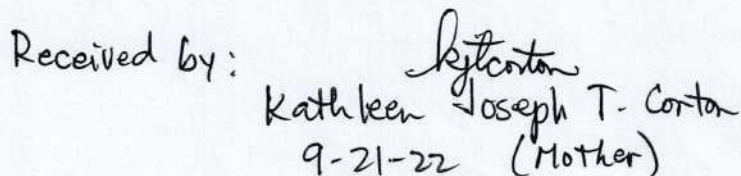 Received by: kjtcorton
Kathleen Joseph T. Corton
9-21-22 (Mother)